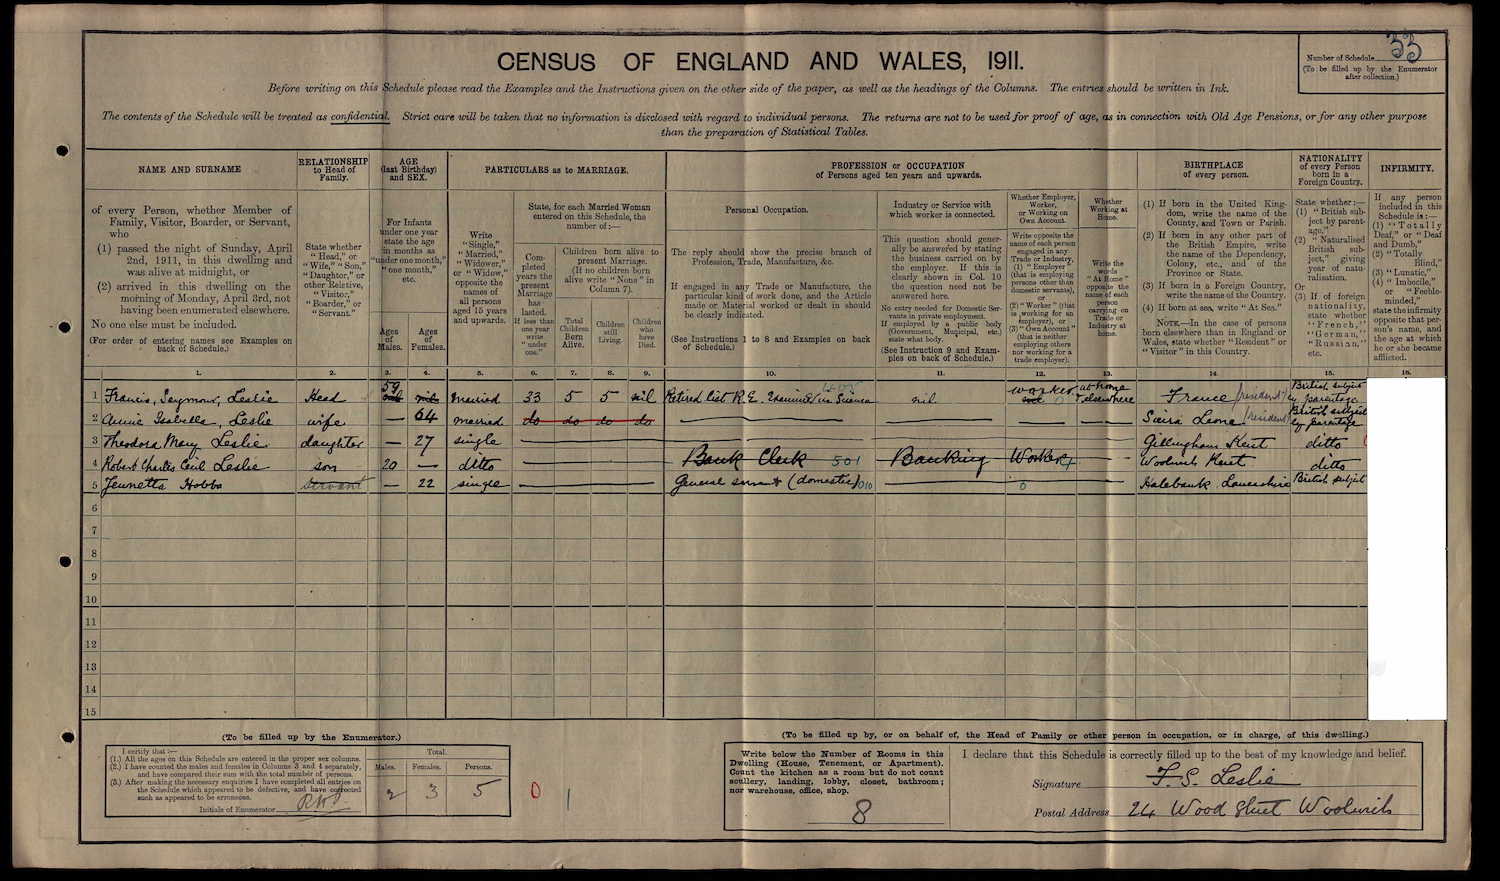 33
Number of Schedule
(To be filled up by the Enumerator
after collection.)
CENSUS OF ENGLAND AND WALES, 1911.
Before writing on this Schedule please read the Examples and the Instructions given on the other side of the paper, as well as the headings of the Columns. The entries should be written in Ink.
The contents of the Schedule will be treated as confidential. Strict care will be taken that no information is disclosed with regard to individual persons. The returns are not to be used for proof of age, as in connection with Old Age Pensions, or for any other purpose
than the preparation of Statistical Tables.
NAME AND SURNAME
of every Person, whether Member of
Family, Visitor, Boarder, or Servant,
who
(1) passed the night of Sunday, April
2nd, 1911, in this dwelling and
was alive at midnight, or
(2) arrived in this dwelling on the
morning of Monday, April 3rd, not
having been enumerated elsewhere.
No one else must be included.
(For order of entering names see Examples on
back of Schedule.)
RELATIONSHIP
to Head of
Family.
State whether
"Head," or
"Wife," "Son,"
"Daughter," or
other Relative,
"Visitor,"
"Boarder," or
"Servant."
AGE
(last Birthday)
and SEX.
For Infants
under one year
state the age
in months as
"under one month,"
"one month,"
etc.
Ages
of
Males.
Ages
of
Females.
PARTICULARS as to MARRIAGE.
Write
"Single,"
"Married,"
"Widower,"
or "Widow,"
opposite the
names of
all persons
aged 15 years
and upwards.
State, for each Married Woman
entered on this Schedule, the
number of:—
Com-
pleted
years the
present
Marriage
has
lasted.
If less than
one year
write
"under
one."
Children born alive to
present Marriage.
(If no children born
alive write "None" in
Column 7).
Total
Children
Born
Alive.
Children
still
Living.
Children
who
have
Died.
PROFESSION or OCCUPATION
of Persons aged ten years and upwards.
Personal Occupation.
The reply should show the precise branch of
Profession, Trade, Manufacture, &c.
If engaged in any Trade or Manufacture, the
particular kind of work done, and the Article
made or Material worked or dealt in should
be clearly indicated.
(See Instructions 1 to 8 and Examples on back
of Schedule.)
Industry or Service with
which worker is connected.
This question should gener-
ally be answered by stating
the business carried on by
the employer. If this is
clearly shown in Col. 10
the question need not be
answered here.
No entry needed for Domestic Ser-
vants in private employment.
If employed by a public body
(Government, Municipal, etc.)
state what body.
(See Instruction 9 and Exam-
ples on back of Schedule.)
Whether Employer,
Worker,
or Working on
Own Account.
Write opposite the
name of each person
engaged in any
Trade or Industry,
(1) "Employer"
(that is employing
persons other than
domestic servants),
or
(2) "Worker" (that
is working for an
employer), or
(3) "Own Account"
(that is neither
employing others
nor working for a
trade employer).
Whether
Working at
Home.
Write the
words
"At Home"
opposite the
name of each
person
carrying on
Trade or
Industry at
home.
BIRTHPLACE
of every person.
(1) If born in the United King-
dom, write the name of the
County, and Town or Parish.
(2) If born in any other part of
the British Empire, write
the name of the Dependency,
Colony, etc., and of the
Province or State.
(3) If born in a Foreign Country,
write the name of the Country.
(4) If born at sea, write "At Sea."
NOTE.—In the case of persons
born elsewhere than in England or
Wales, state whether "Resident" or
"Visitor" in this Country.
NATIONALITY
of every Person
born in a
Foreign Country.
State whether:—
(1) "British sub-
ject by parent-
age,"
(2) "Naturalised
British sub-
ject," giving
year of natu-
ralisation.
Or
(3) If of foreign
nationality,
state whether
"French,"
"German,"
"Russian,"
etc.
INFIRMITY.
If any person
included in this
Schedule is:—
(1) "Totally
Deaf," or "Deaf
and Dumb,"
(2) "Totally
Blind,"
(3) "Lunatic,"
(4) "Imbecile,"
or "Feeble-
minded,"
state the infirmity
opposite that per-
son's name, and
the age at which
he or she became
afflicted.
1. 2. 3. 4. 5. 6. 7. 8. 9. 10. 11. 12. 13. 14. 15. 16.
1 Francis, Seymour, Leslie Head 59 nil married 33 5 5 nil Retired list R.E. Examiner in Science nil worker at home & elsewhere France (resident) British subject by parentage
2 Annie Isabella, Leslie wife — 64 married do do do do — — — — Sierra Leone (resident) British subject by parentage
3 Theodora Mary Leslie daughter — 27 single — Gillingham Kent ditto
4 Robert Charles Cecil Leslie son 20 — ditto — Bank Clerk 501 Banking Worker Woolwich Kent ditto
5 Jennetta Hobbs servant — 22 single — General servant (domestic) 010 0 Halebank Lancashire British subject
6
7
8
9
10
11
12
13
14
15
(To be filled up by the Enumerator.)
I certify that:—
(1.) All the ages on this Schedule are entered in the proper sex columns.
(2.) I have counted the males and females in Columns 3 and 4 separately,
and have compared their sum with the total number of persons.
(3.) After making the necessary enquiries I have completed all entries on
the Schedule which appeared to be defective, and have corrected
such as appeared to be erroneous.
Initials of Enumerator
Total.
Males. Females. Persons.
2 3 5
0 1
(To be filled up by, or on behalf of, the Head of Family or other person in occupation, or in charge, of this dwelling.)
Write below the Number of Rooms in this
Dwelling (House, Tenement, or Apartment).
Count the kitchen as a room but do not count
scullery, landing, lobby, closet, bathroom;
nor warehouse, office, shop.
8
I declare that this Schedule is correctly filled up to the best of my knowledge and belief.
Signature F. S. Leslie
Postal Address 24 Wood Street Woolwich